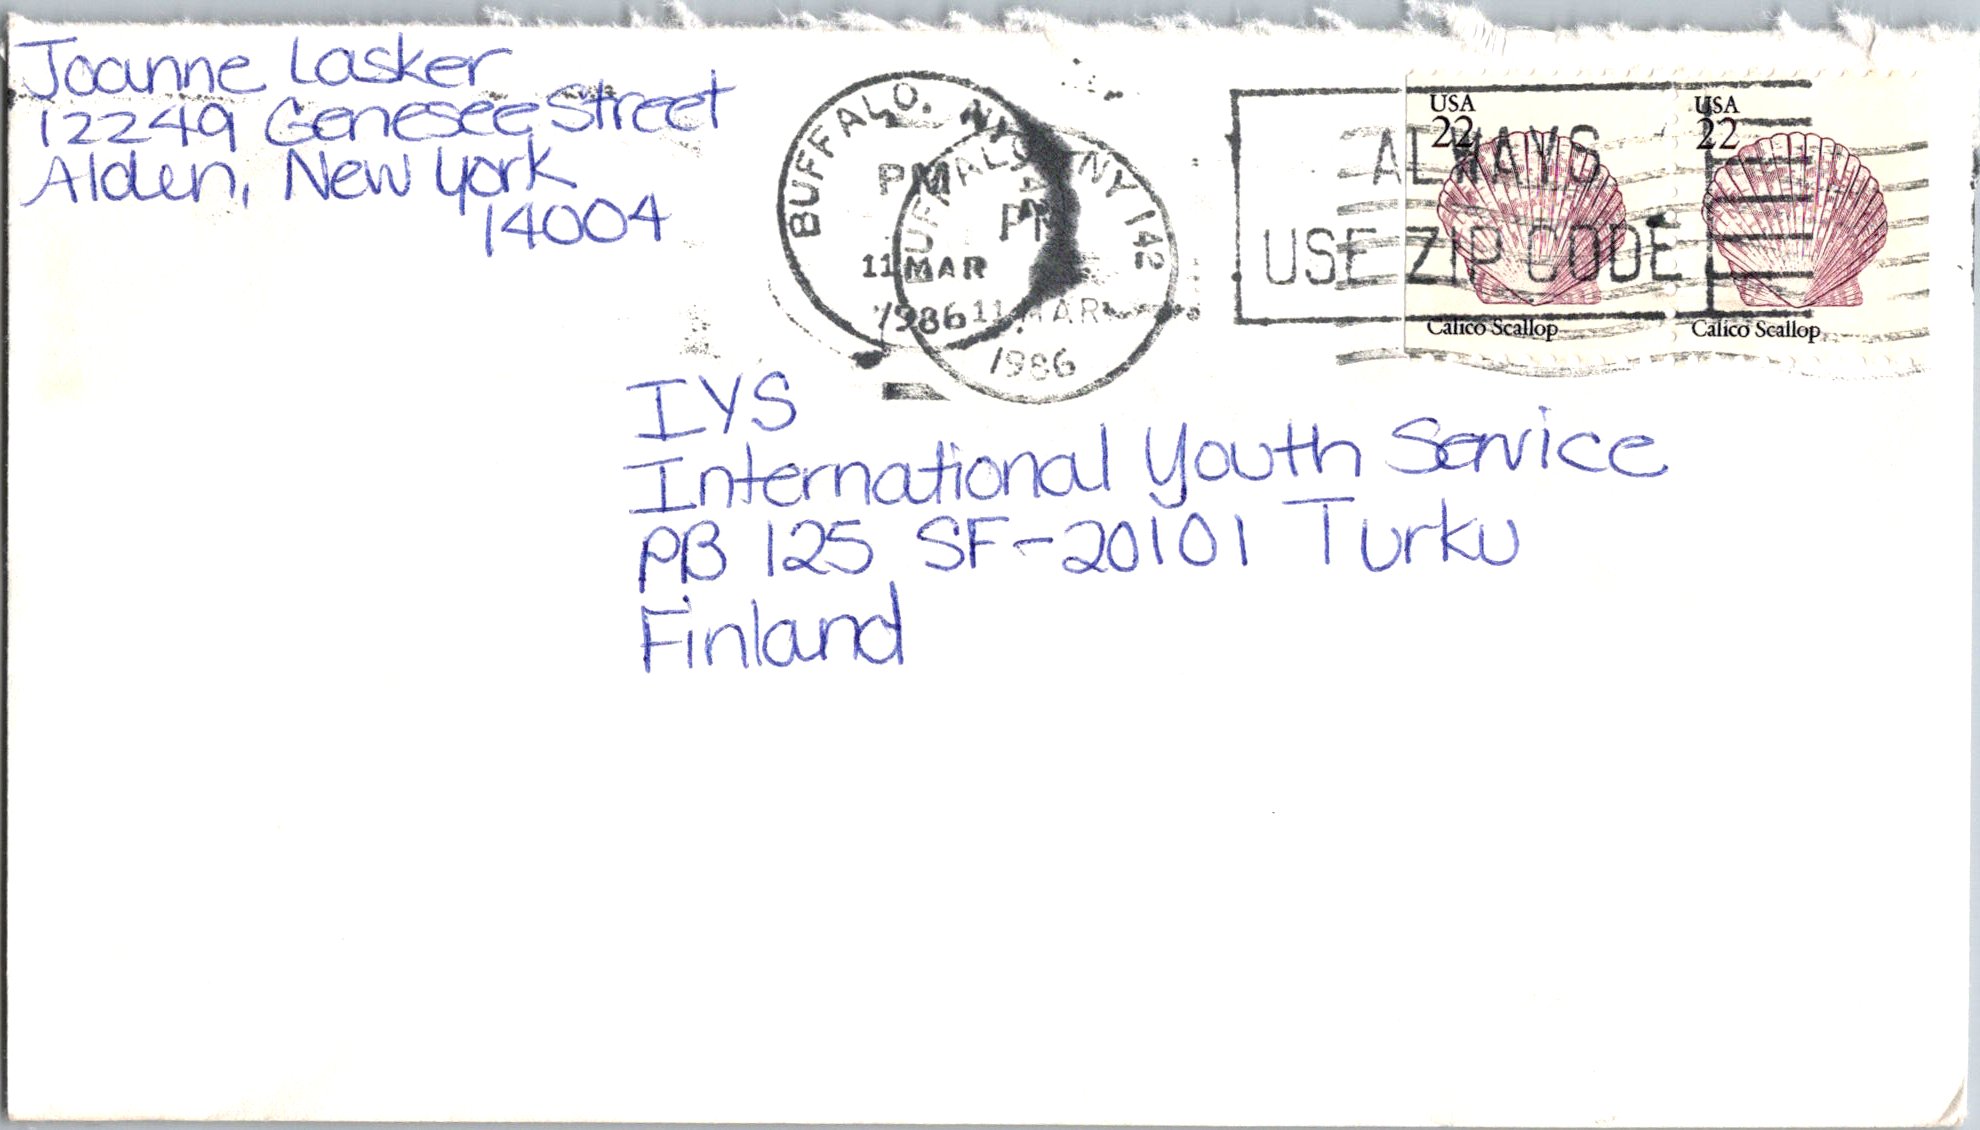 Joanne Lasker
12249 Genesee Street
Alden, New York
14004
BUFFALO, NY
PM
11 MAR
1986
BUFFALO NY 142
PM
11 MAR
1986
ALWAYS
USE ZIP CODE
USA
22
Calico Scallop
USA
22
Calico Scallop
IYS
International Youth Service
PB 125 SF-20101 Turku
Finland